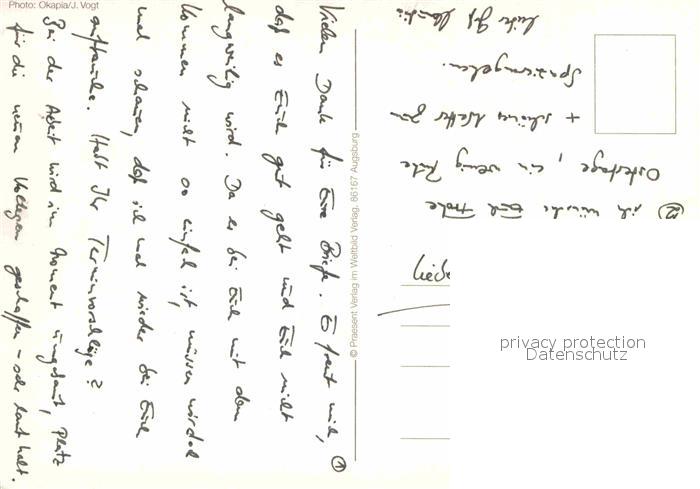 Photo: Okapia/J. Vogt
① Vielen Dank für Eure Briefe. Es freut mich,
daß es Euch gut geht und Euch nicht
langweilig wird. Da es bei Euch mit dem
Kommen nicht so einfach ist, müssen wir doch
mal schauen, daß ich mal wieder bei Euch
auftauche. Habt Ihr Terminvorschläge?
Bei der Arbeit wird im Moment umgebaut, Platz
für die neuen Kollegen geschaffen - sehr laut halt.
② ich wünsche Euch Frohe
Ostertage, ein wenig Ruhe
+ schönes Wetter zum
Spazierengehen.
Liebe
© Praesent Verlag im Weltbild Verlag, 86167 Augsburg
privacy protection
Datenschutz